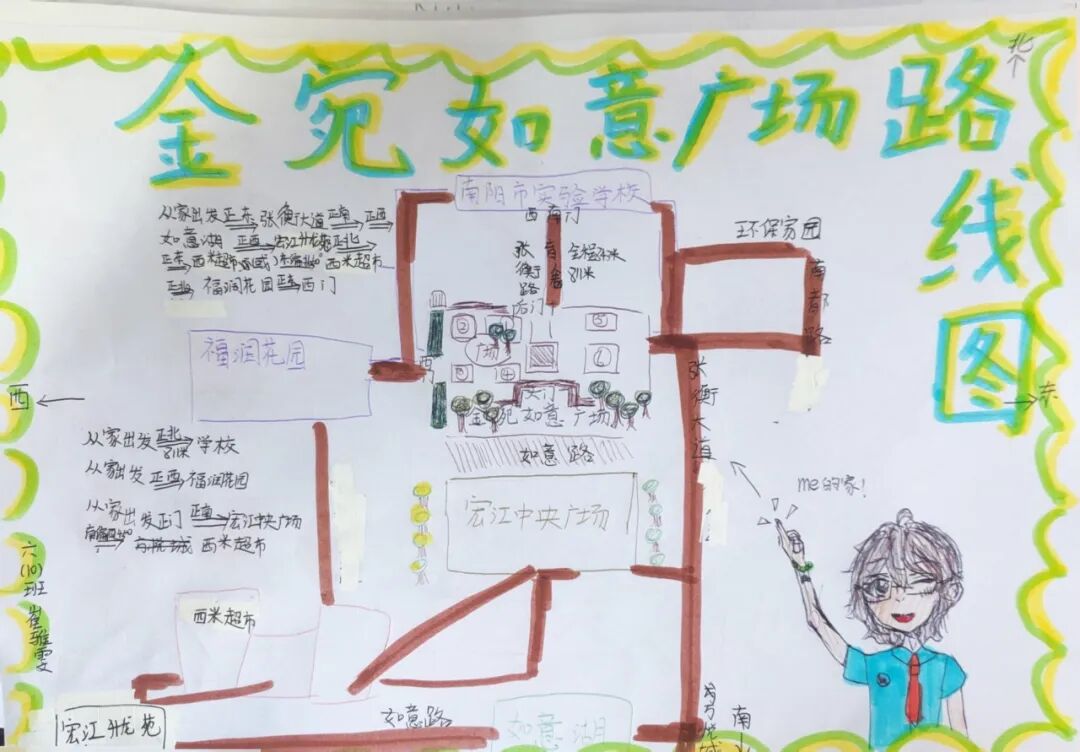 金宛如意广场路
线
图
北
南阳市实验学校
西南门
从家出发正东张衡大道正南正西
如意湖正西宏江州龙苑正北
正东西米超市
西米超市
正北福润花园正东西门
张衡路
后门
全程
811米
环保家园
南都路
福润花园
西门
②
⑤
广场
④
正门
金宛如意广场
西
东
张衡大道
如意路
从家出发正北学校
811米
从家出发正西福润花园
从家出发正门正南宏江中央广场
西米超市
宏江中央广场
me的家!
六(10)班
西米超市
宏江州龙苑
如意路
如意湖
南